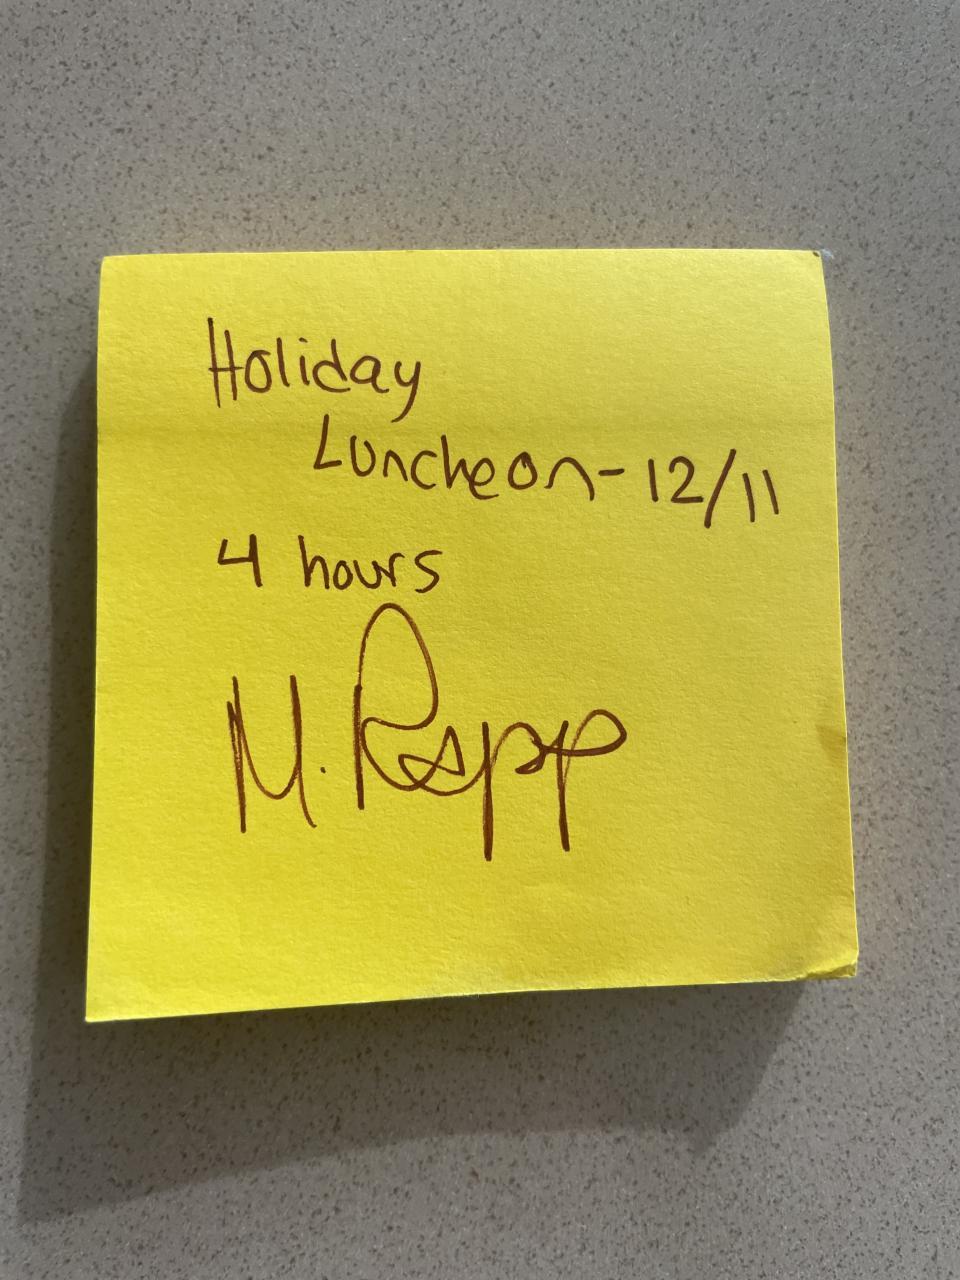 Holiday
Luncheon - 12/11
4 hours
M. Rapp